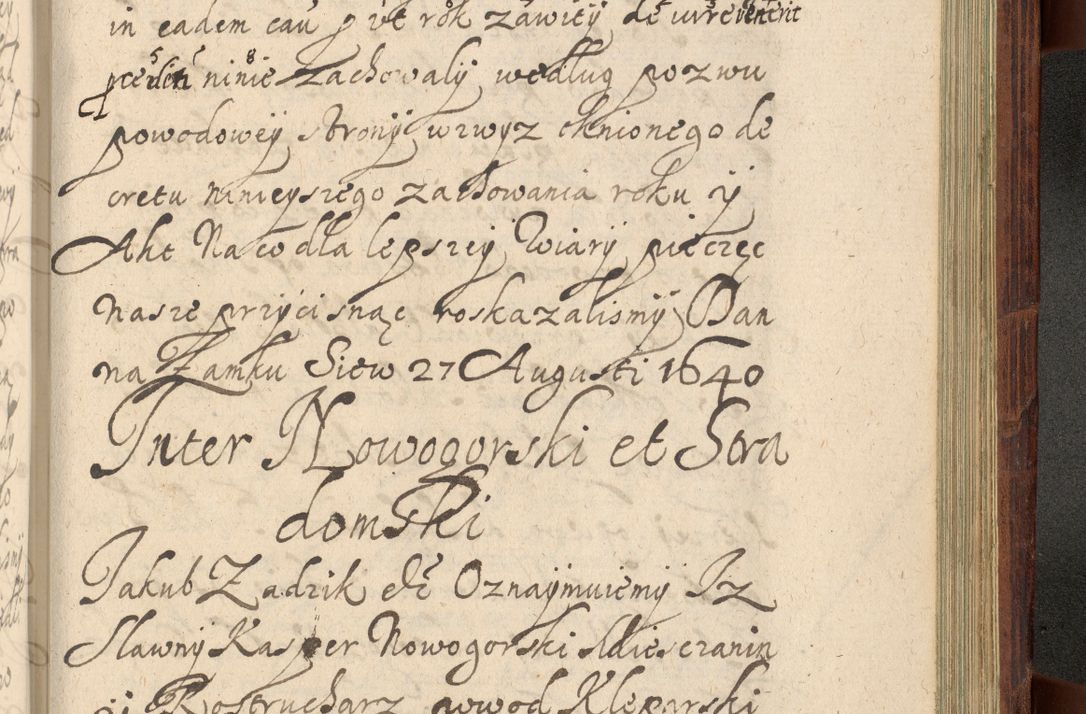 in eadem cau p it rok zawity de iure venerit
ninie zachowaly według pozwu
powodowey strony wzwyz mnionego de
cretu ninieyszego zachowania roku y
Akt Na co dla lepszey Wiary pieczęc
nasze przycisnąc roskazalismy Dan
na Zamku Siew 27 Augusti 1640
Inter Nowogorski et Stra
domski
Jakub Zadzik etc Oznaymuiemy Iz
Slawny Kasper Nowogorski Mieszczanin
y Rostrucharz powod Kleparski